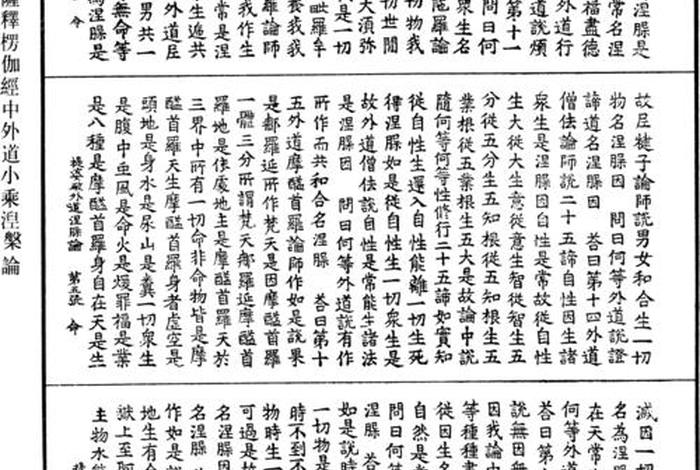 涅脲是
常名涅
福盡德
外道行
道說煩
第十一
問曰何
眾生名
陀羅論
物物我
初世間
大須弥
是一切
毗羅牟
養我我
羅論師
我作生
常是涅
生遞共
外道尼
男共一
無命等
為涅脲是
命
故尼揵子論師說男女和合生一切
物名涅脲因 問曰何等外道說證
諦道名涅脲因 荅曰第十四外道
僧佉論師說二十五諦自性因生諸
眾生是涅脲因自性是常故從自性
生大從大生意從意生智從智生五
分從五分生五知根從五知根生五
業根從五業根生五大是故論中說
隨何等何等性修行二十五諦如實知
從自性生還入自性能離一切生死
得涅脲如是從自性生一切眾生是
故外道僧佉說自性是常能生諸法
是涅脲因 問曰何等外道說有作
所作而共和合名涅脲 荅曰第十
五外道摩醯首羅論師作如是說果
是那羅延所作梵天是因摩醯首羅
一體三分所謂梵天那羅延摩醯首
羅地是依處地主是摩醯首羅天於
三界中所有一切命非命物皆是摩
醯首羅天生摩醯首羅身者虛空是
頭地是身水是尿山是糞一切眾生
是腹中虫風是命火是煖罪福是業
是八種是摩醯首羅身自在天是生
提婆破外道涅脲論 第五張 命
滅因一
名為涅
在天常
何等外
荅曰第
說無因無
因我論中
等種種
從因生名
自然是
問曰何等
涅脲 荅
如是說時
一切物是
時不到不
物時生一
可過是故
名涅脲因
名涅脲
作如是
地生有命
獄上至阿
主物水能
薩釋楞伽經中外道小乘涅槃論